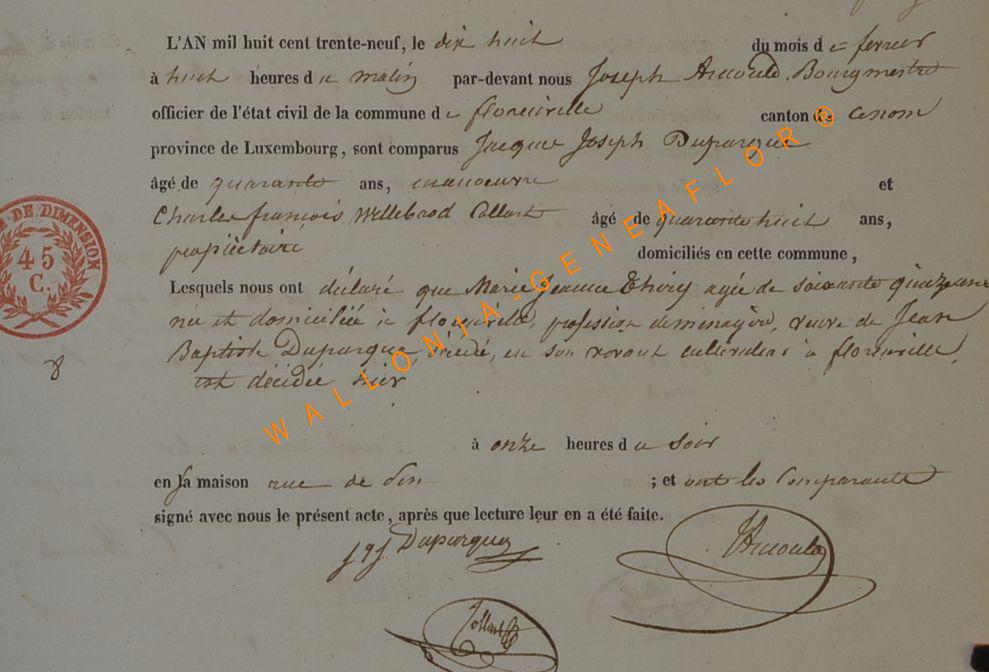 L'AN mil huit cent trente-neuf, le dix huit du mois de fevrier
à huit heures du matin par-devant nous Joseph Arnould Bourgmestre
officier de l'état civil de la commune de florenville canton de
province de Luxembourg, sont comparus Jacque Joseph Duparque
âgé de quarante ans, manoeuvre et
Charles françois Willebrod Collart âgé de quarante huit ans,
propriétaire domiciliés en cette commune,
Lesquels nous ont déclaré que Marie Jeanne Thiry agée de soixante quinze ans
née et domiciliée à florenville, profession de ménagère, veuve de Jean
Baptiste Duparque, décédé, en son vivant cultivateur à florenville,
est décédée hier
à onze heures du soir
en sa maison rue de ; et ont les Comparants
signé avec nous le présent acte, après que lecture leur en a été faite.
JgJ Duparque
JArnould
Collart
DE DIMENSION
45
C.
WALLONIA-GENEAFLORE